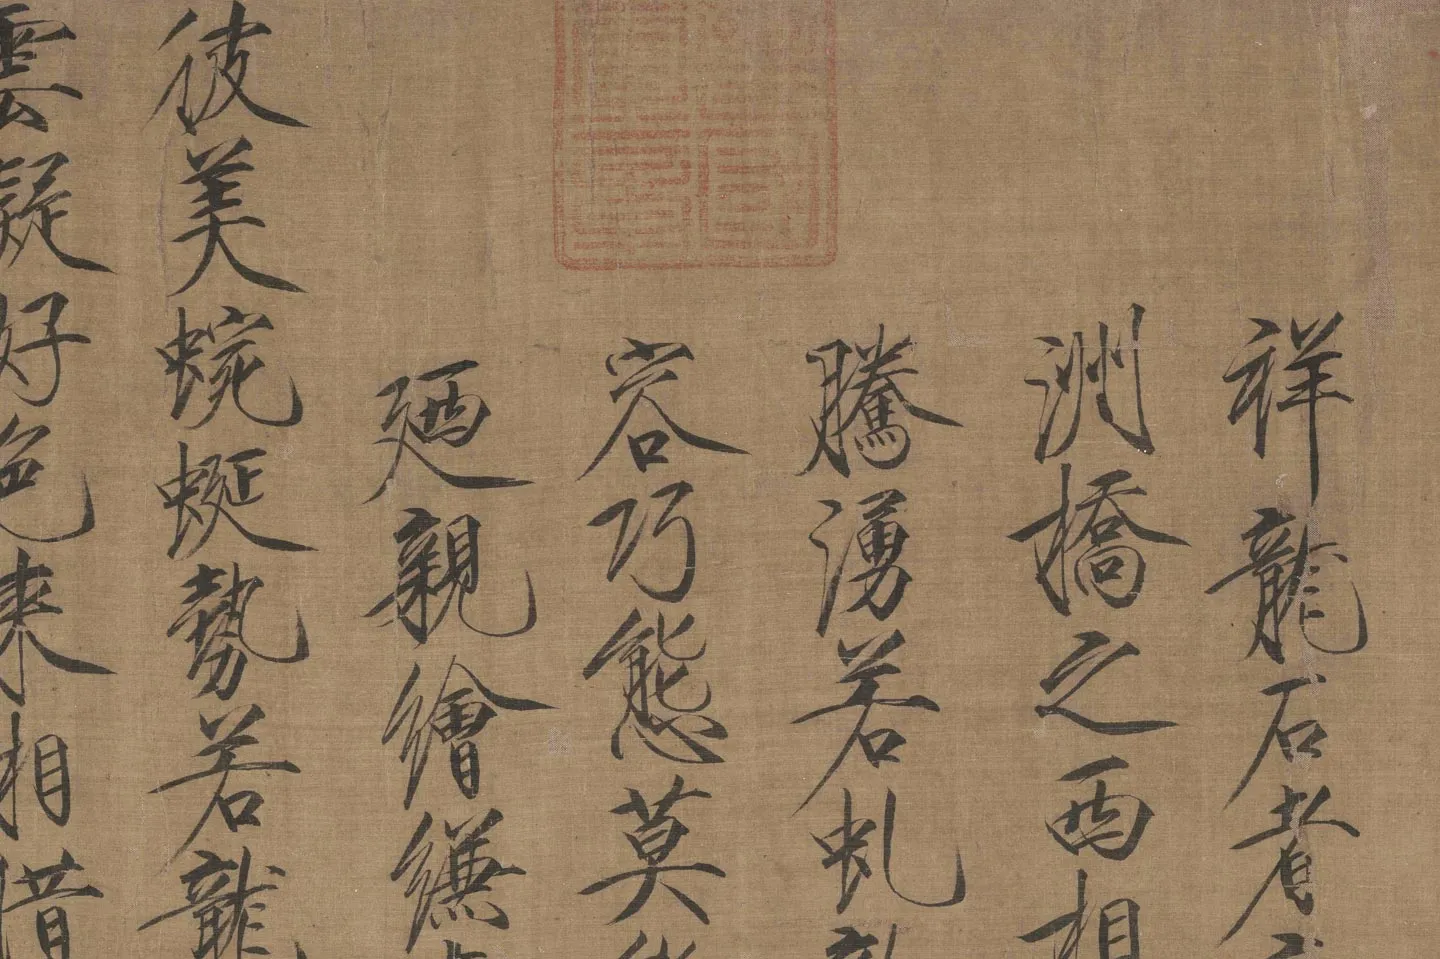 祥龍石者
洲橋之西相
騰湧若虬
容巧態莫
廼親繪縑
彼美蜿蜒勢若龍
雲凝好色来相借